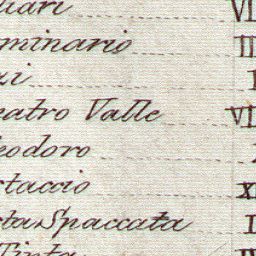 liari VI
minario II
zi I
eatro Valle VI
eodoro
staccio X
ta Spaccata I
Tinta IV